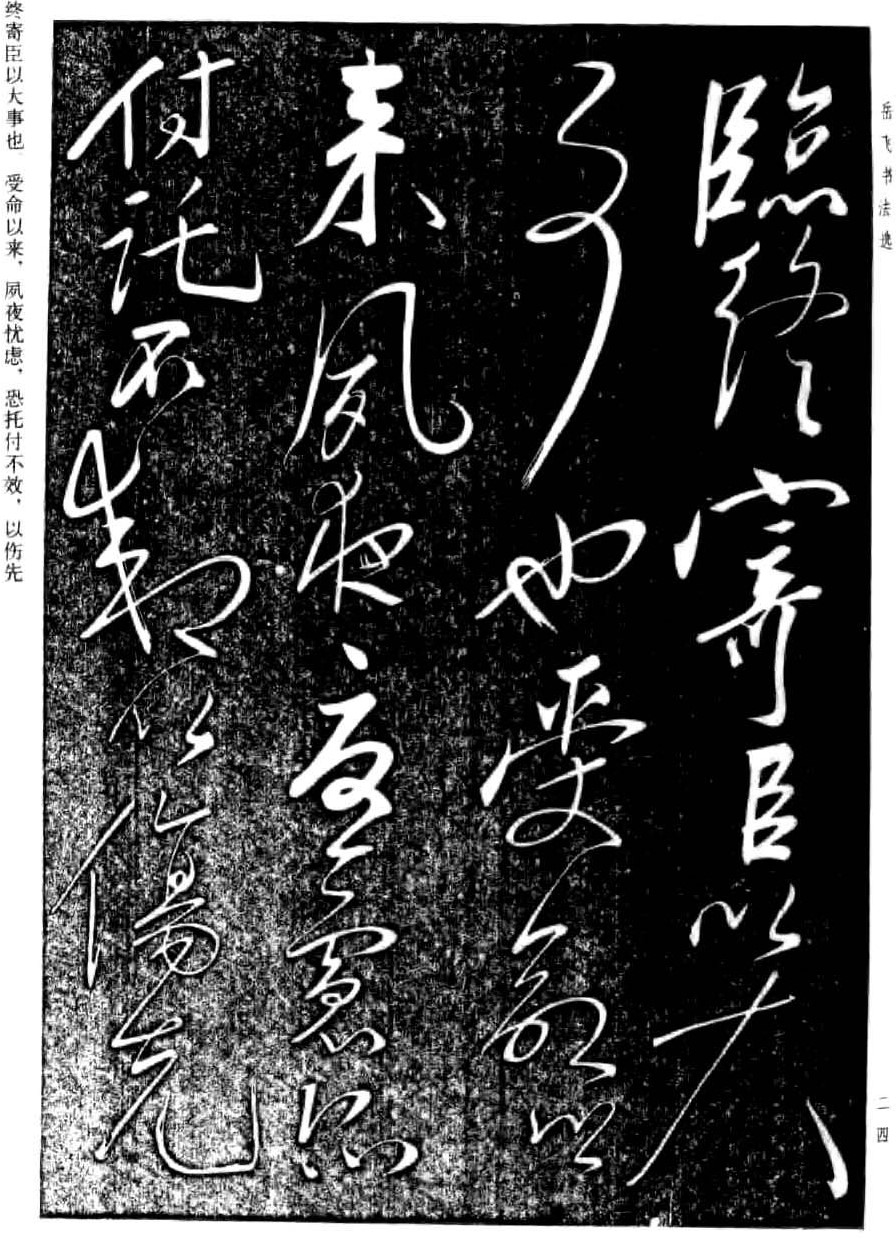 岳飞书法选
二四
臨終寄臣以大
事也受命以
来夙夜憂慮恐
付託不効以傷先
终寄臣以大事也。受命以来，夙夜忧虑，恐托付不效，以伤先